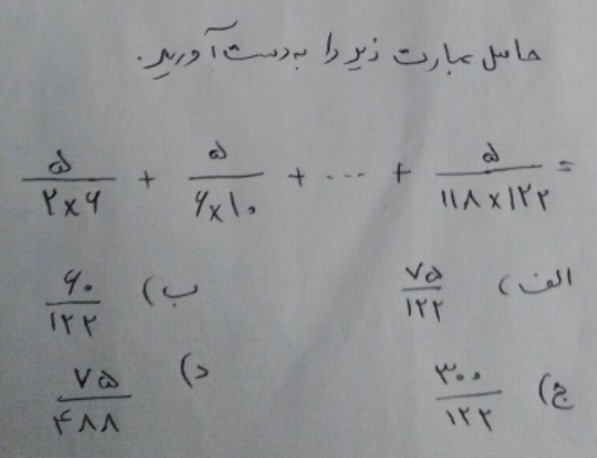 حاصل عبارت زیر را به‌دست آورید.
۵/(۲×۶) + ۵/(۶×۱۰) + ... + ۵/(۱۱۸×۱۲۲) =
الف) ۷۵/۱۲۲ ب) ۶۰/۱۲۲
ج) ۳۰۰/۱۲۲ د) ۷۵/۴۸۸